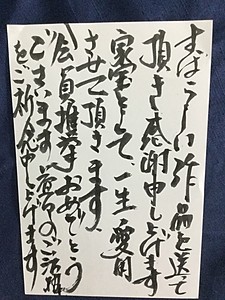 すばらしい作品を送って
頂き感謝申し上げます
家宝として、一生愛用
させて頂きます、
会員推挙おめでとう
ございます 益々のご活躍
をご祈念申し上げます